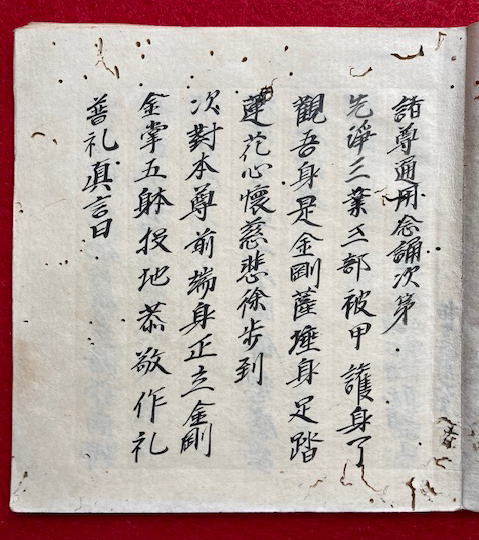 諸尊通用念誦次第
先淨三業三部被甲護身了
觀吾身是金剛薩埵身足踏
蓮花心懷慈悲徐步到
次對本尊前端身正立金剛
合掌五躰投地恭敬作礼
普礼真言曰